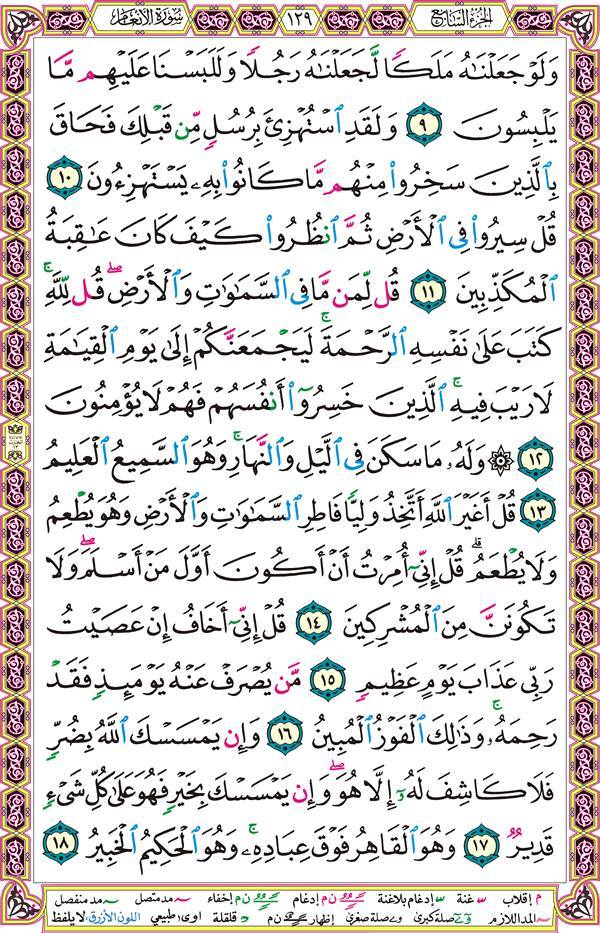 الجزء السابع ١٢٩ سورة الأنعام
وَلَوْ جَعَلْنَٰهُ مَلَكًا لَّجَعَلْنَٰهُ رَجُلًا وَلَلَبَسْنَا عَلَيْهِم مَّا
يَلْبِسُونَ ٩ وَلَقَدِ ٱسْتُهْزِئَ بِرُسُلٍ مِّن قَبْلِكَ فَحَاقَ
بِٱلَّذِينَ سَخِرُوا۟ مِنْهُم مَّا كَانُوا۟ بِهِۦ يَسْتَهْزِءُونَ ١٠
قُلْ سِيرُوا۟ فِى ٱلْأَرْضِ ثُمَّ ٱنظُرُوا۟ كَيْفَ كَانَ عَٰقِبَةُ
ٱلْمُكَذِّبِينَ ١١ قُل لِّمَن مَّا فِى ٱلسَّمَٰوَٰتِ وَٱلْأَرْضِ ۖ قُل لِّلَّهِ ۚ
كَتَبَ عَلَىٰ نَفْسِهِ ٱلرَّحْمَةَ ۚ لَيَجْمَعَنَّكُمْ إِلَىٰ يَوْمِ ٱلْقِيَٰمَةِ
لَا رَيْبَ فِيهِ ۚ ٱلَّذِينَ خَسِرُوٓا۟ أَنفُسَهُمْ فَهُمْ لَا يُؤْمِنُونَ
١٢ ۞ وَلَهُۥ مَا سَكَنَ فِى ٱلَّيْلِ وَٱلنَّهَارِ ۚ وَهُوَ ٱلسَّمِيعُ ٱلْعَلِيمُ
١٣ قُلْ أَغَيْرَ ٱللَّهِ أَتَّخِذُ وَلِيًّا فَاطِرِ ٱلسَّمَٰوَٰتِ وَٱلْأَرْضِ وَهُوَ يُطْعِمُ
وَلَا يُطْعَمُ ۗ قُلْ إِنِّىٓ أُمِرْتُ أَنْ أَكُونَ أَوَّلَ مَنْ أَسْلَمَ ۖ وَلَا
تَكُونَنَّ مِنَ ٱلْمُشْرِكِينَ ١٤ قُلْ إِنِّىٓ أَخَافُ إِنْ عَصَيْتُ
رَبِّى عَذَابَ يَوْمٍ عَظِيمٍ ١٥ مَّن يُصْرَفْ عَنْهُ يَوْمَئِذٍ فَقَدْ
رَحِمَهُۥ ۚ وَذَٰلِكَ ٱلْفَوْزُ ٱلْمُبِينُ ١٦ وَإِن يَمْسَسْكَ ٱللَّهُ بِضُرٍّ
فَلَا كَاشِفَ لَهُۥٓ إِلَّا هُوَ ۖ وَإِن يَمْسَسْكَ بِخَيْرٍ فَهُوَ عَلَىٰ كُلِّ شَىْءٍ
قَدِيرٌ ١٧ وَهُوَ ٱلْقَاهِرُ فَوْقَ عِبَادِهِۦ ۚ وَهُوَ ٱلْحَكِيمُ ٱلْخَبِيرُ ١٨
م إقلاب غنة إدغام بلاغنة ن م إدغام ن م إخفاء مد متصل مد منفصل
المد اللازم صلة كبرى صلة صغرى إظهار ن م قلقلة اوى طبيعي اللون الأزرق لا يلفظ